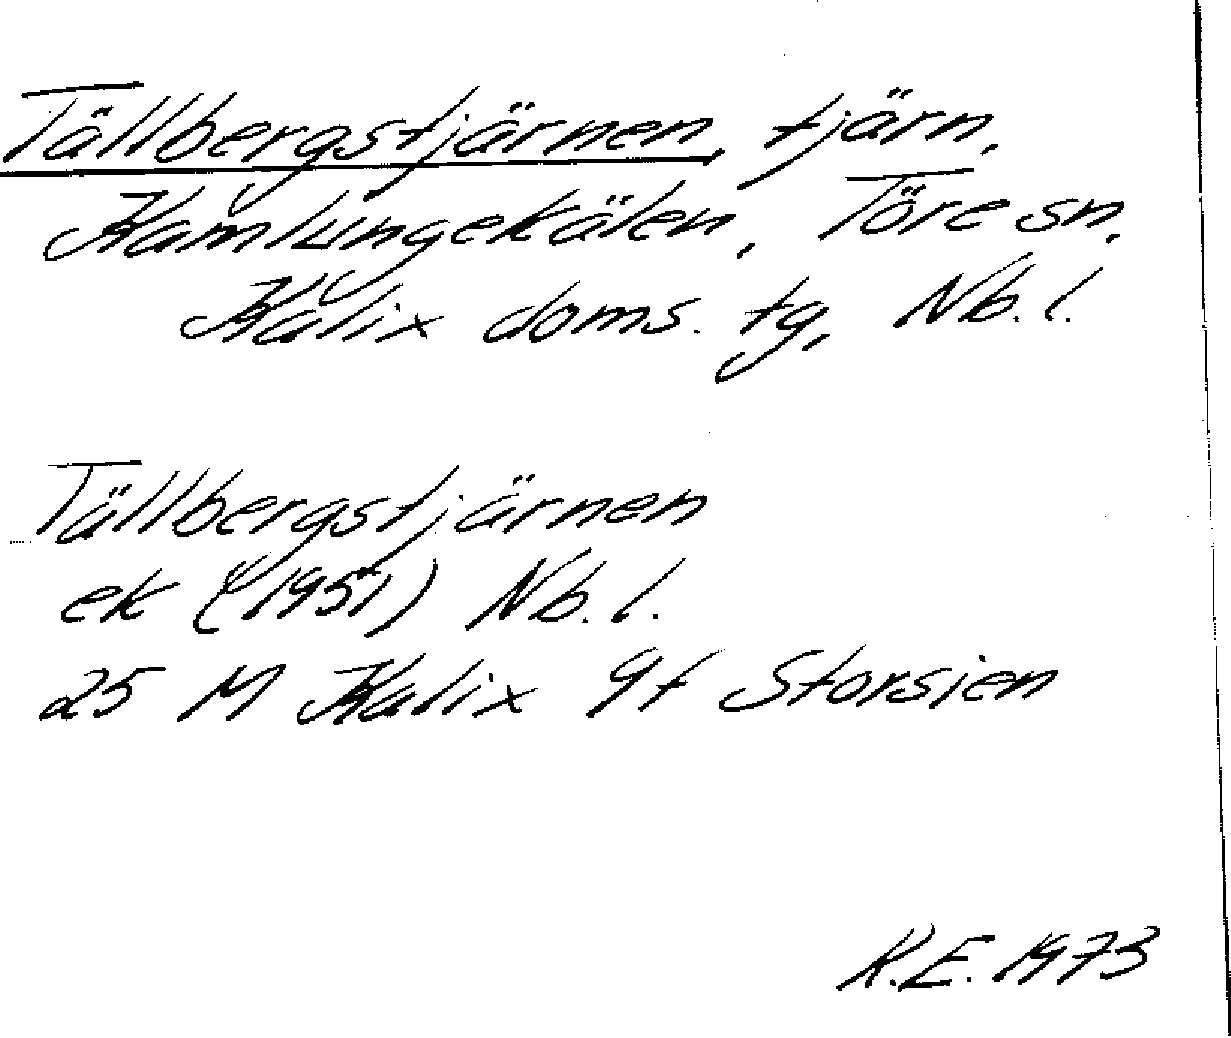 Tällbergstjärnen, tjärn,
Kamlungekälen, Töre sn,
Kalix doms. tg, Nb. l.
Tällbergstjärnen
ek (1951) Nb. l.
25 M Kalix 9f Storsien
K.E. 1973